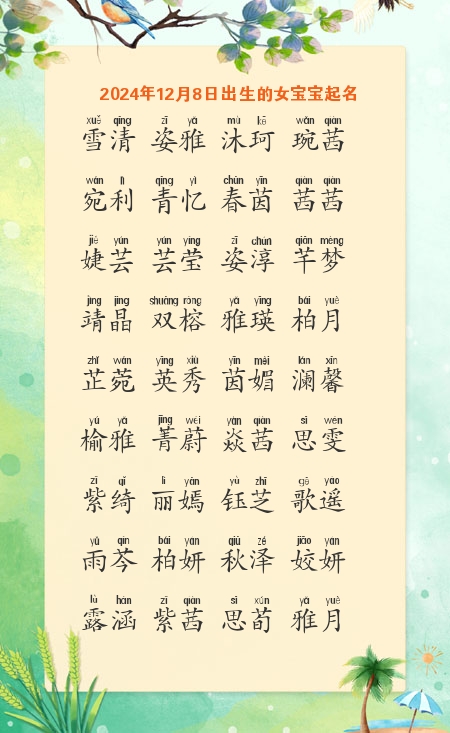 2024年12月8日出生的女宝宝起名
xuě qīng zī yǎ mù kē wǎn qiàn
雪清 姿雅 沐珂 琬茜
wǎn lì qīng yì chūn yīn qiàn qiàn
宛利 青忆 春茵 茜茜
jié yún yún yíng zī chún qiān mèng
婕芸 芸莹 姿淳 芊梦
jìng jīng shuāng róng yǎ yīng bǎi yuè
靖晶 双榕 雅瑛 柏月
zhǐ wǎn yīng xiù yīn mèi lán xīn
芷菀 英秀 茵媚 澜馨
yú yǎ jīng wèi yàn qiàn sī wén
榆雅 菁蔚 焱茜 思雯
zǐ qǐ lì yān yù zhī gē yáo
紫绮 丽嫣 钰芝 歌遥
yǔ qín bǎi yán qiū zé jiāo yán
雨芩 柏妍 秋泽 姣妍
lù hán zǐ qiàn sī xún yǎ yuè
露涵 紫茜 思荀 雅月